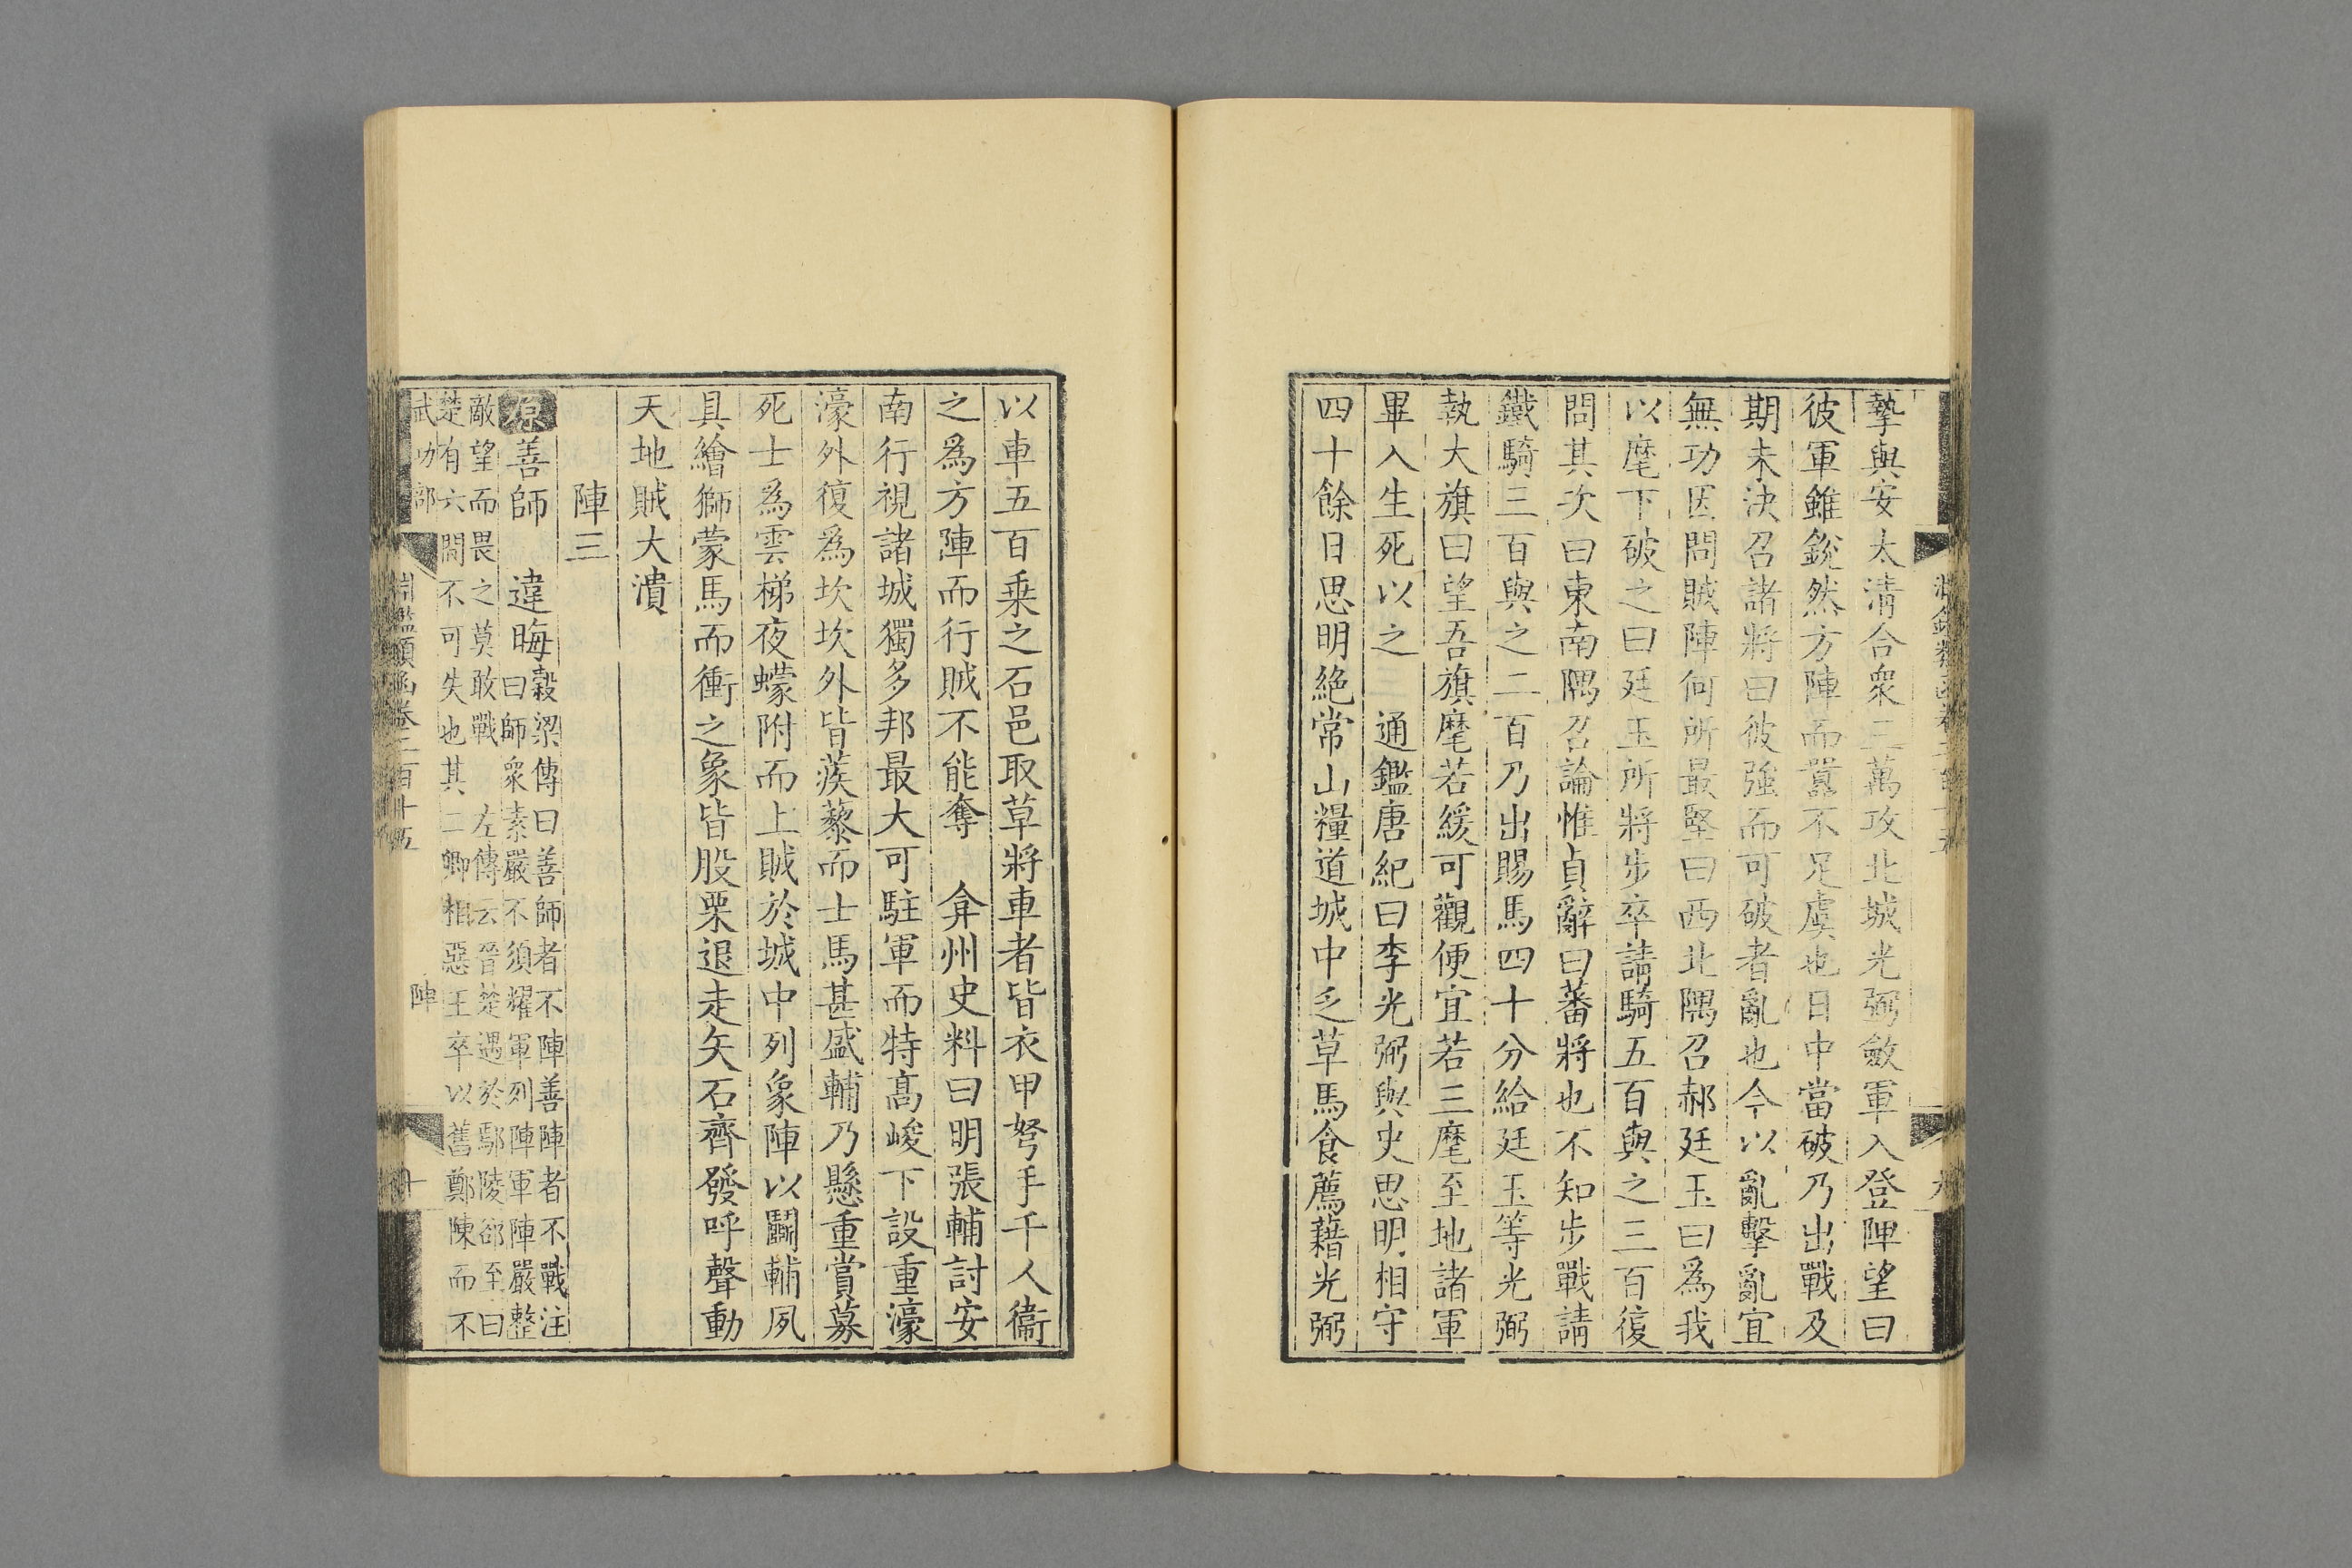 摯與安太清合衆三萬攻北城光弼斂軍入登陴望曰
彼軍雖銳然方陣而囂不足虞也日中當破乃出戰及
期未決召諸將曰彼強而可破者亂也今以亂擊亂宜
無功因問賊陣何所最堅曰西北隅召郝廷玉曰爲我
以麾下破之曰廷玉所將步卒請騎五百與之三百復
問其次曰東南隅召論惟貞辭曰蕃將也不知步戰請
鐵騎三百與之二百乃出賜馬四十分給廷玉等光弼
執大旗曰望吾旗麾若緩可觀便宜若三麾至地諸軍
畢入生死以之　通鑑唐紀曰李光弼與史思明相守
四十餘日思明絶常山糧道城中乏草馬食薦藉光弼
以車五百乗之石邑取草將車者皆衣甲弩手千人衞
之爲方陣而行賊不能奪　弇州史料曰明張輔討安
南行視諸城獨多邦最大可駐軍而特髙峻下設重濠
濠外復爲坎坎外皆蒺藜而士馬甚盛輔乃懸重賞募
死士爲雲梯夜蠓附而上賊於城中列象陣以鬭輔夙
具繪獅蒙馬而衝之象皆股栗退走矢石齊發呼聲動
天地賊大潰
陣三
原善師　違晦
穀梁傳曰善師者不陣善陣者不戰注
曰師衆素嚴不須耀軍列陣軍陣嚴整
敵望而畏之莫敢戰　左傳云晉楚遇於鄢陵郤至曰
楚有六間不可失也其二卿相惡王卒以舊鄭陳而不
武功部
淵鑑類函卷二百十五
陣
十